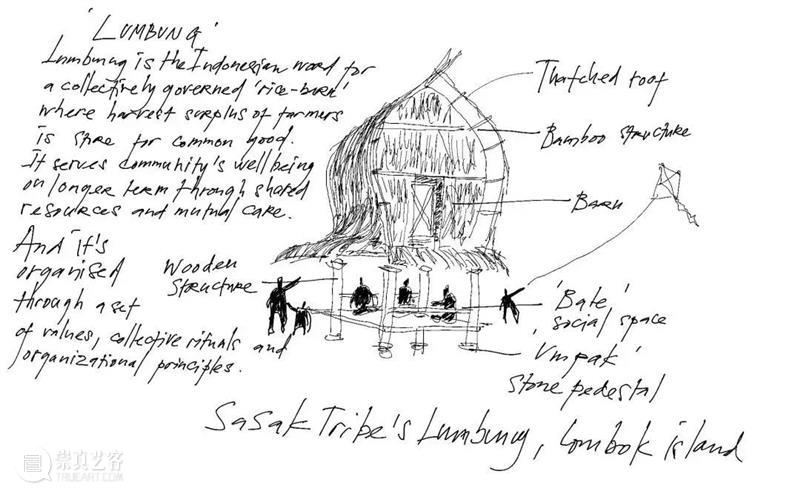 'LUMBUNG'
Lumbung is the Indonesian word for
a collectively governed 'rice-barn'
where harvest surplus of farmers
is store for common good.
It serves community's well being
on longer term through shared
resources and mutual care.
And it's
organised
through a set
of values, collective rituals and
organizational principles.
Thatched roof
Bamboo structure
Barn
Wooden
structure
'Bate'
social space
'Umpak'
stone pedestal
Sasak Tribe's Lumbung, Lombok island
崇真艺客